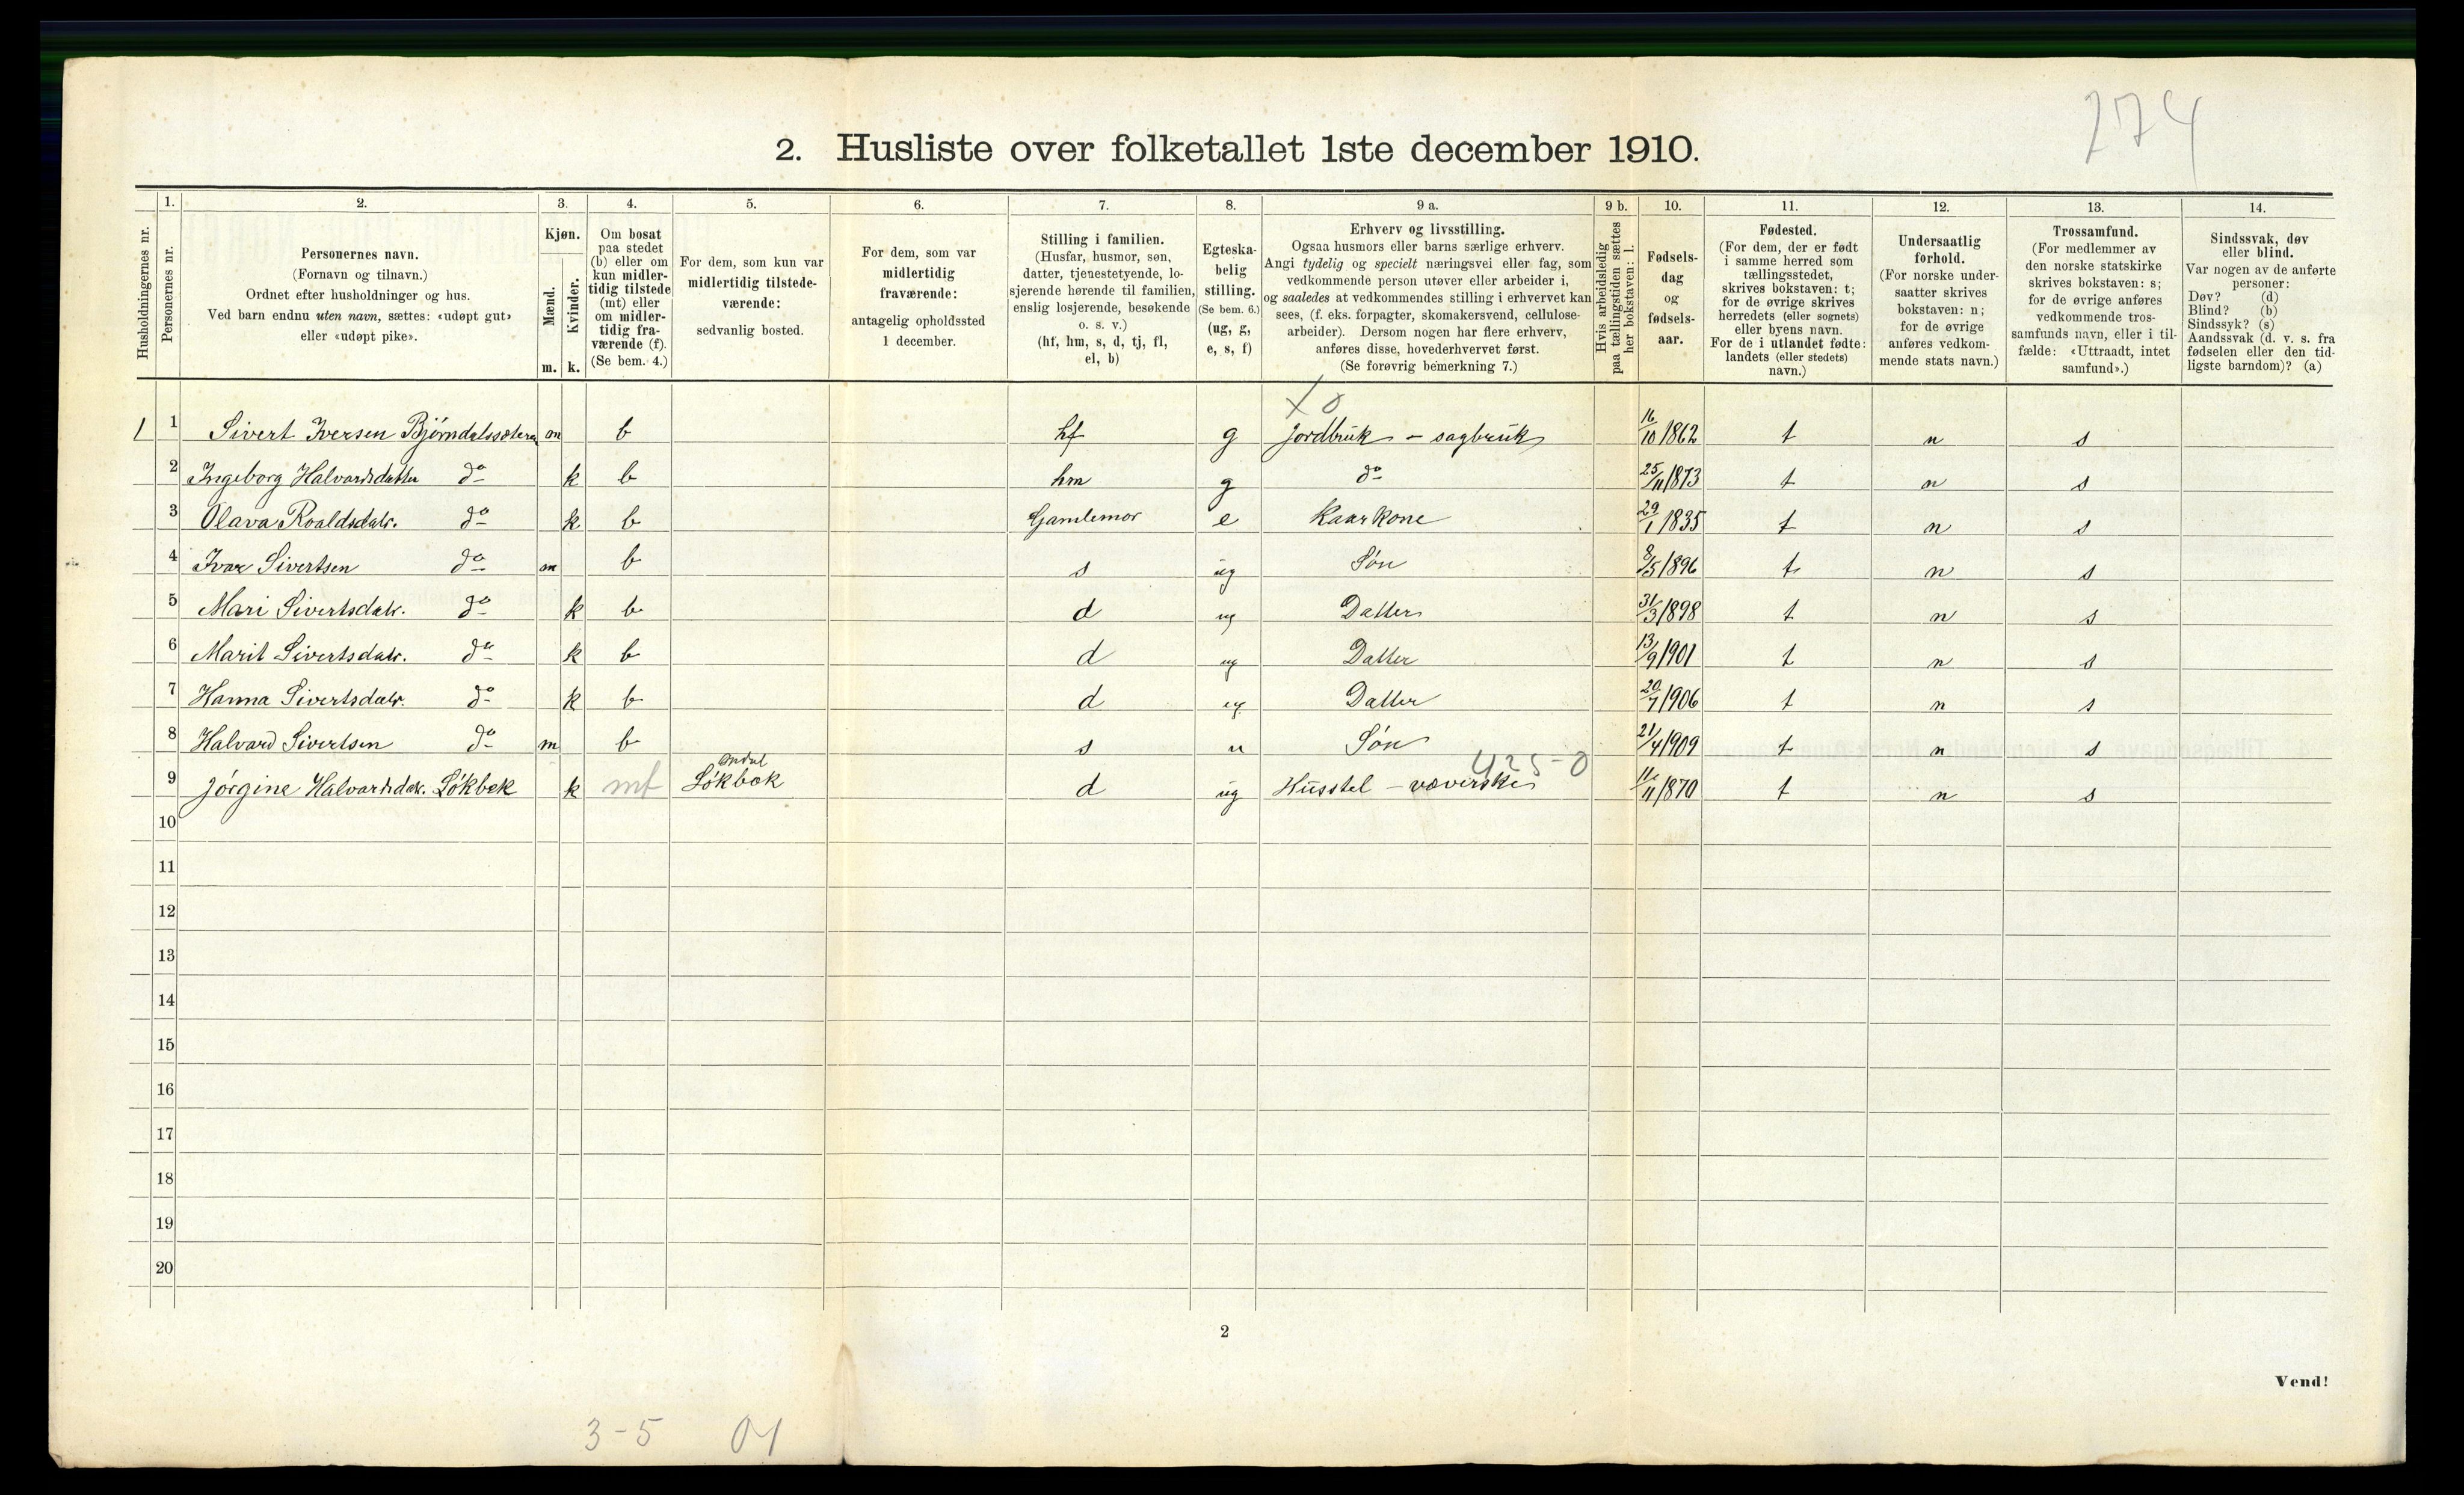 274
2. Husliste over folketallet 1ste december 1910.
Husholdningernes nr.
1.
Personernes nr.
2.
Personernes navn.
(Fornavn og tilnavn.)
Ordnet efter husholdninger og hus.
Ved barn endnu uten navn, sættes: «udøpt gut»
eller «udøpt pike».
3.
Kjøn.
Mænd.
Kvinder.
m. k.
4.
Om bosat
paa stedet
(b) eller om
kun midler-
tidig tilstede
(mt) eller
om midler-
tidig fra-
værende (f).
(Se bem. 4.)
5.
For dem, som kun var
midlertidig tilstede-
værende:
sedvanlig bosted.
6.
For dem, som var
midlertidig
fraværende:
antagelig opholdssted
1 december.
7.
Stilling i familien.
(Husfar, husmor, søn,
datter, tjenestetyende, lo-
sjerende hørende til familien,
enslig losjerende, besøkende
o. s. v.)
(hf, hm, s, d, tj, fl,
el, b)
8.
Egteska-
belig
stilling.
(Se bem. 6.)
(ug, g,
e, s, f)
9 a.
Erhverv og livsstilling.
Ogsaa husmors eller barns særlige erhverv.
Angi tydelig og specielt næringsvei eller fag, som
vedkommende person utøver eller arbeider i,
og saaledes at vedkommendes stilling i erhvervet kan
sees, (f. eks. forpagter, skomakersvend, cellulose-
arbeider). Dersom nogen har flere erhverv,
anføres disse, hovederhvervet først.
(Se forøvrig bemerkning 7.)
9 b.
Hvis arbeidsledig
paa tællingstiden sættes
her bokstaven: l.
10.
Fødsels-
dag
og
fødsels-
aar.
11.
Fødested.
(For dem, der er født
i samme herred som
tællingsstedet,
skrives bokstaven: t;
for de øvrige skrives
herredets (eller sognets)
eller byens navn.
For de i utlandet fødte:
landets (eller stedets)
navn.)
12.
Undersaatlig
forhold.
(For norske under-
saatter skrives
bokstaven: n;
for de øvrige
anføres vedkom-
mende stats navn.)
13.
Trossamfund.
(For medlemmer av
den norske statskirke
skrives bokstaven: s;
for de øvrige anføres
vedkommende tros-
samfunds navn, eller i til-
fælde: «Uttraadt, intet
samfund».)
14.
Sindssvak, døv
eller blind.
Var nogen av de anførte
personer:
Døv? (d)
Blind? (b)
Sindssyk? (s)
Aandssvak (d. v. s. fra
fødselen eller den tid-
ligste barndom)? (a)
x 0
1 1 Sivert Iversen Bjørndalssætera m b hf g Jordbruk - sagbruk 16/10 1862 t n s
2 Ingeborg Halvardsdatter do k b hm g do 25/11 1873 t n s
3 Olava Roaldsdatr. do k b Gamlemor e Kaarkone 29/1 1835 t n s
4 Ivar Sivertsen do m b s ug Søn 8/5 1896 t n s
5 Mari Sivertsdatr. do k b d ug Datter 31/3 1898 t n s
6 Marit Sivertsdatr. do k b d ug Datter 13/9 1901 t n s
7 Hanna Sivertsdatr. do k b d ug Datter 20/7 1906 t n s
8 Halvard Sivertsen do m b s u Søn 21/4 1909 t n s
425-0
9 Jørgine Halvardsdatr. Løkbek k mt Løkbek d ug Husstel - væverske 11/11 1870 t n s
10
11
12
13
14
15
16
17
18
19
20
2
Vend!
3-5